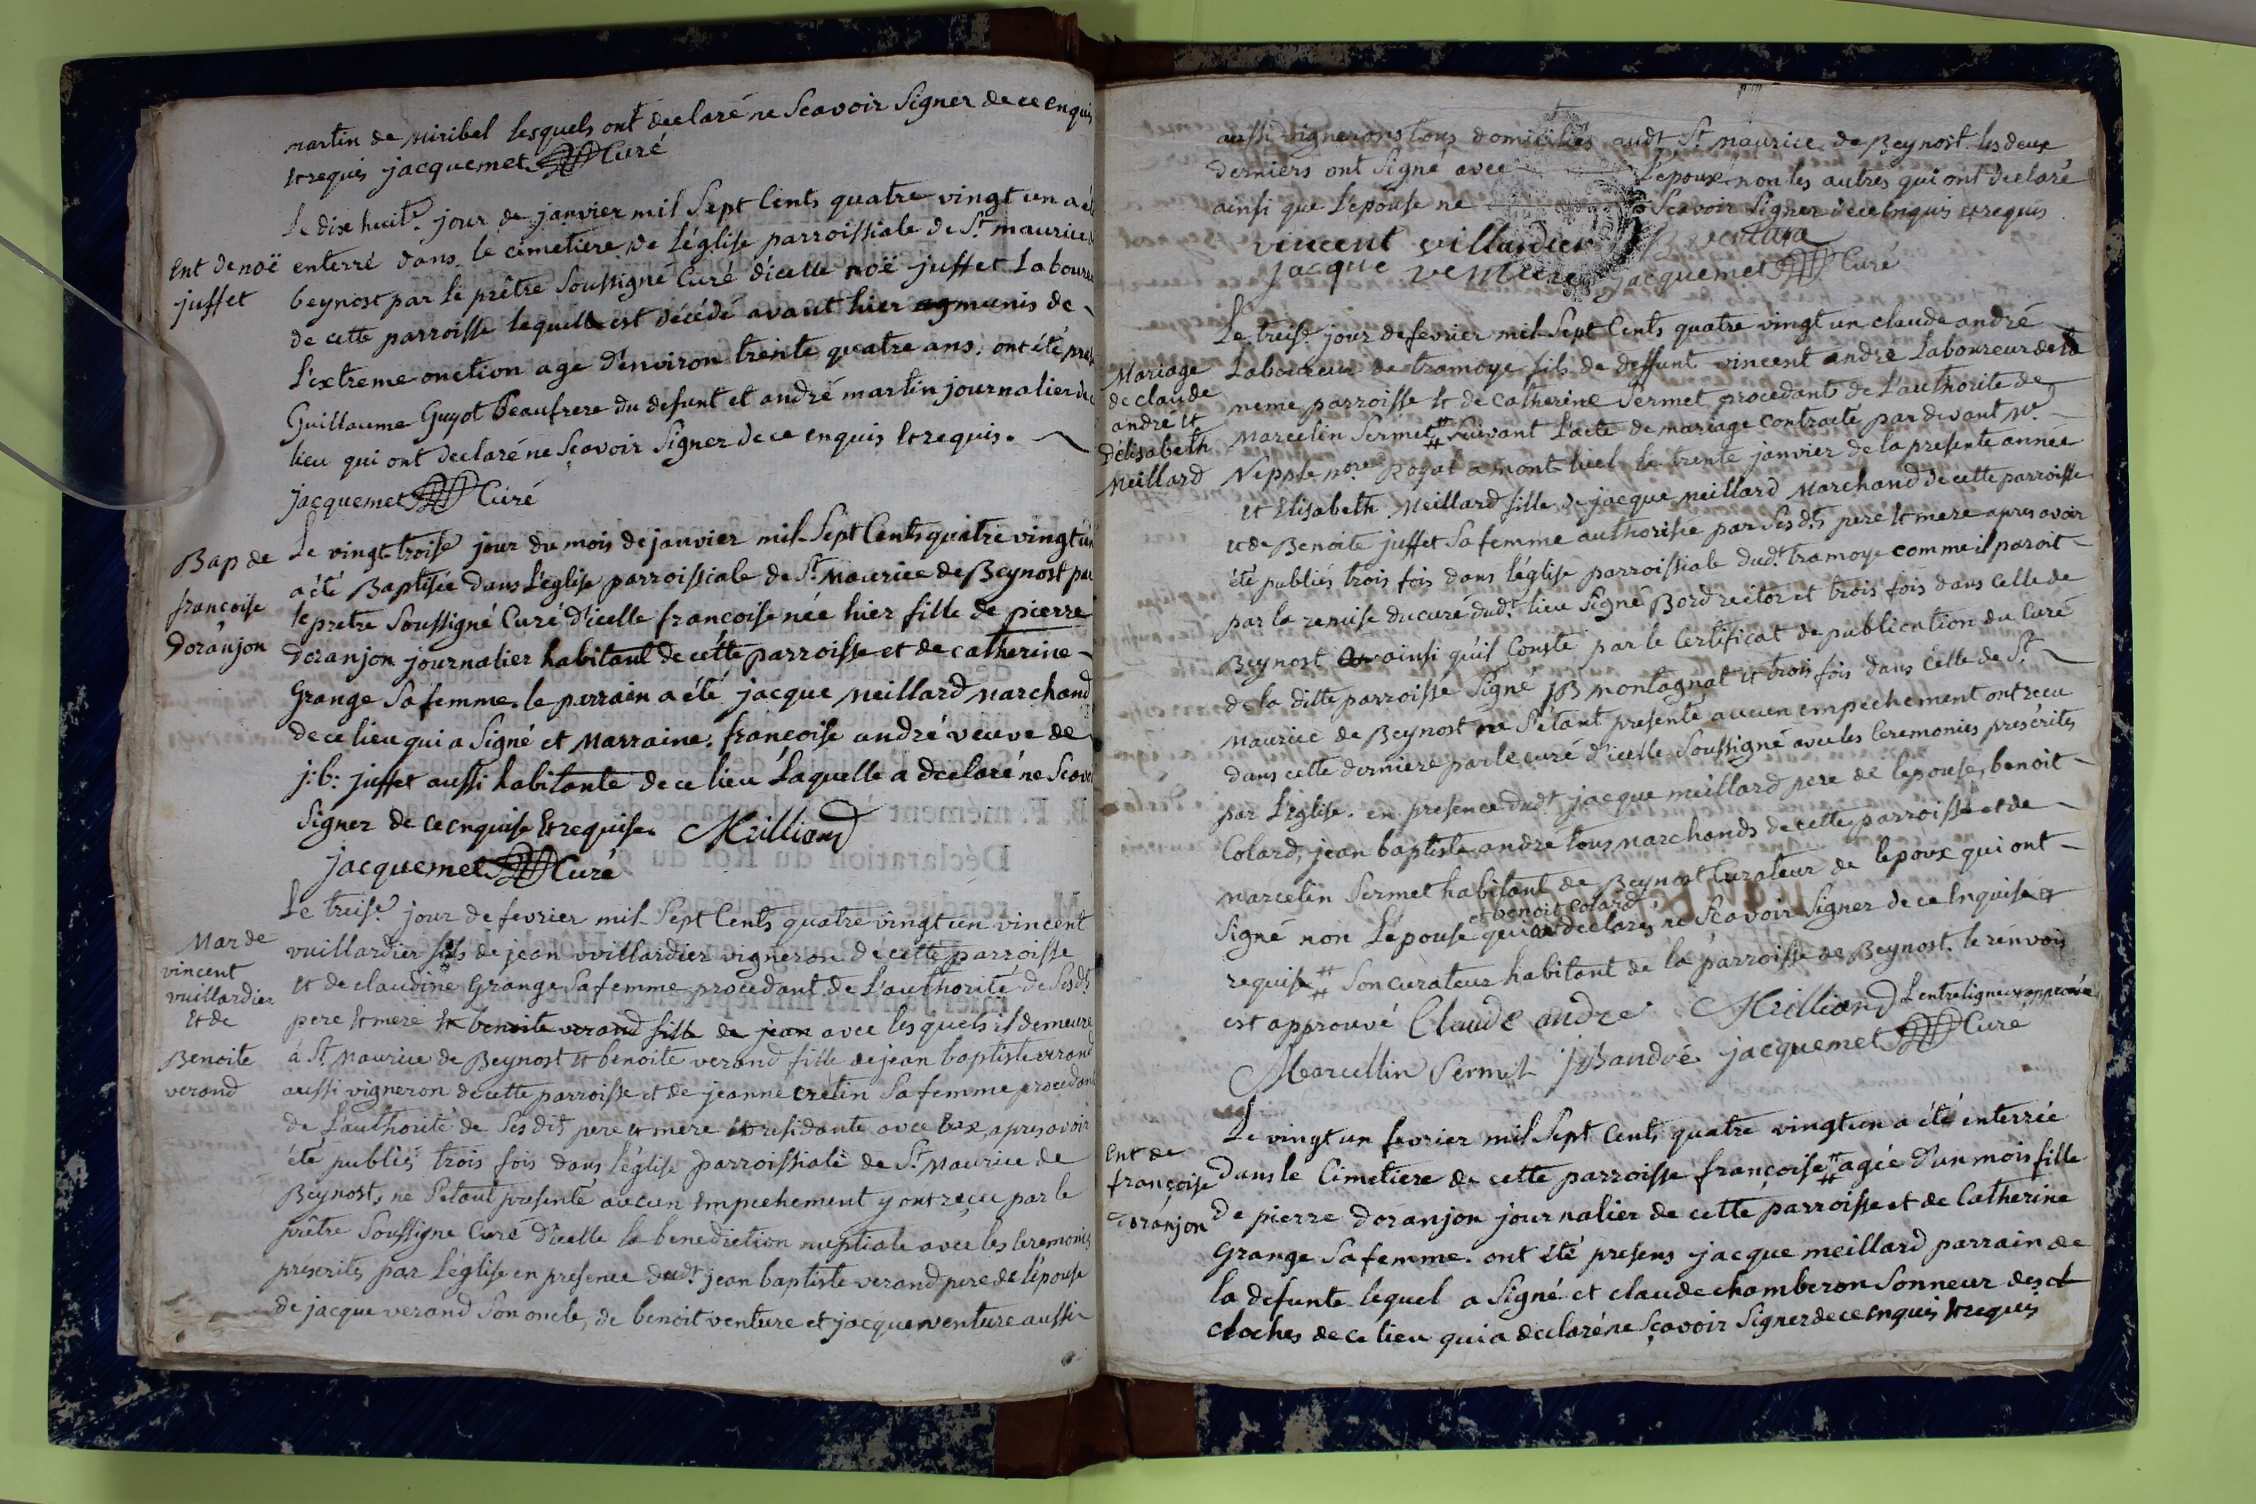 martin de Miribel lesquels ont declaré ne Scavoir Signer de ce enquis
et requis jacquemet Curé
Ent de noë
juffet
Le dix huit.e jour de janvier mil Sept Cents quatre vingt un a été
enterré dans le cimetiere de l'église parroissiale de St maurice de
beynost par le prêtre Soussigné Curé d'icelle noë juffet Laboureur
de cette parroisse lequel est décédé avant hier munis de
L'extreme onction age d'environ trente quatre ans. ont été
Guillaume Guyot Beaufrere du defunt et andré martin journalier de
lieu qui ont declaré ne Sçavoir Signer de ce enquis et requis.
jacquemet Curé
Bap de
françoise
Doranjon
Le vingt troise jour du mois de janvier mil Sept Cents quatre vingt un
a été Baptisée dans L'église parroissiale de St Maurice de Beynost par
le pretre Soussigné Curé d'icelle francoise née hier fille de pierre
Doranjon journalier habitant de cette parroisse et de catherine
Grange Sa femme. le parrain a été jacque Meillard Marchand
de ce lieu qui a Signé et Marraine. francoise andré veuve de
j: b: juffet aussi habitante de ce lieu Laquelle a declaré ne Scavoir
Signer de ce enquise et requise. Meilliard
jacquemet Curé
Mar de
vincent
vuillardier
et de
Benoite
verand
Le treise. jour de fevrier mil Sept Cents quatre vingt un vincent
vuillardier fils de jean vuillardier vigneron de cette parroisse
et de claudine Grange Sa femme procedant de L'authorité de Sesdt
pere et mere et benoite verand fille de jean avec lesquels il demeure
à St Maurice de Beynost et benoite verand fille de jean baptiste verand
aussi vigneron de cette parroisse et de jeanne cretin Sa femme procedant
de L'authorité de Ses dits pere et mere et residante avec eux, apres avoir
été publiés trois fois dans l'église parroissiale de St Maurice de
Beynost, ne S'etant presenté aucun Empechement y ont reçu par le
prêtre Soussigné Curé d'icelle la benediction nuptiale avec les Ceremonies
préscrites par L'église en presence dudt jean baptiste verand pere de l'épouse
de jacque verand Son oncle, de benoit venture et jacque venture aussi
aussi vignerons tous domiciliés audt St Maurice de Beynost. les deux
derniers ont Signé avec L'époux non les autres qui ont declaré
ainsi que L'epouse ne Scavoir Signer de ce Enquis et requis
vincent villardier B ventura
jacque venture jacquemet Curé
Mariage
de claude
andré et
d'elisabeth
Meillard
Le treise. jour de fevrier mil Sept Cents quatre vingt un claude andré
Laboureur de tramoye fils de deffunt vincent andré Laboureur de la
meme parroisse et de Catherine Sermet procedant de L'authorité de
Marcelin Sermet # Suivant L'acte de mariage contracté par devant Me
Nepple nore Royal a mont-luel le trente janvier de la presente année
et Elisabeth Meillard fille de jacque meillard Marchand de cette parroisse
et de Benoite juffet Sa femme authorisée par Ses dts pere et mere apres avoir
été publiés trois fois dans l'église parroissiale dudt tramoye comme il paroit
par la remise du curé dudt lieu Signé Bord rector et trois fois dans celle de
Beynost ainsi qu'il Conste par le Certificat de publication du Curé
de la ditte parroisse Signé JB montagnat et trois fois dans Celle de St
Maurice de Beynost ne S'etant presenté aucun empechement ont recu
dans cette derniere par le curé d'icelle Soussigné avec les Ceremonies prescrites
par L'église. en presence dudt jacque meillard pere de lepouse, benoit
Colard, jean baptiste andré tous Marchands de cette parroisse et de
Marcelin Sermet habitant de Beynost Curateur de lepoux qui ont
et benoit Colard
Signé non L'epouse qui ont declarés ne Sçavoir Signer de ce Enquise et
requise # Son curateur habitant de la parroisse de Beynost. le renvois
est approuvé Claude andre Meilliard L'entreligneux approuvé
Marcellin Sermet JBandré jacquemet Curé
Ent de
françoise
doranjon
Le vingt un fevrier mil Sept Cents quatre vingt un a été enterrée
Dans le Cimetiere de cette parroisse françoise # agée d'un mois fille
De pierre Doranjon journalier de cette parroisse et de Catherine
Grange Sa femme. ont été presens jacque meillard parrain de
la defunte lequel a Signé et claude chamberon Sonneur des
cloches de ce lieu qui a declaré ne Sçavoir Signer de ce enquis et requis